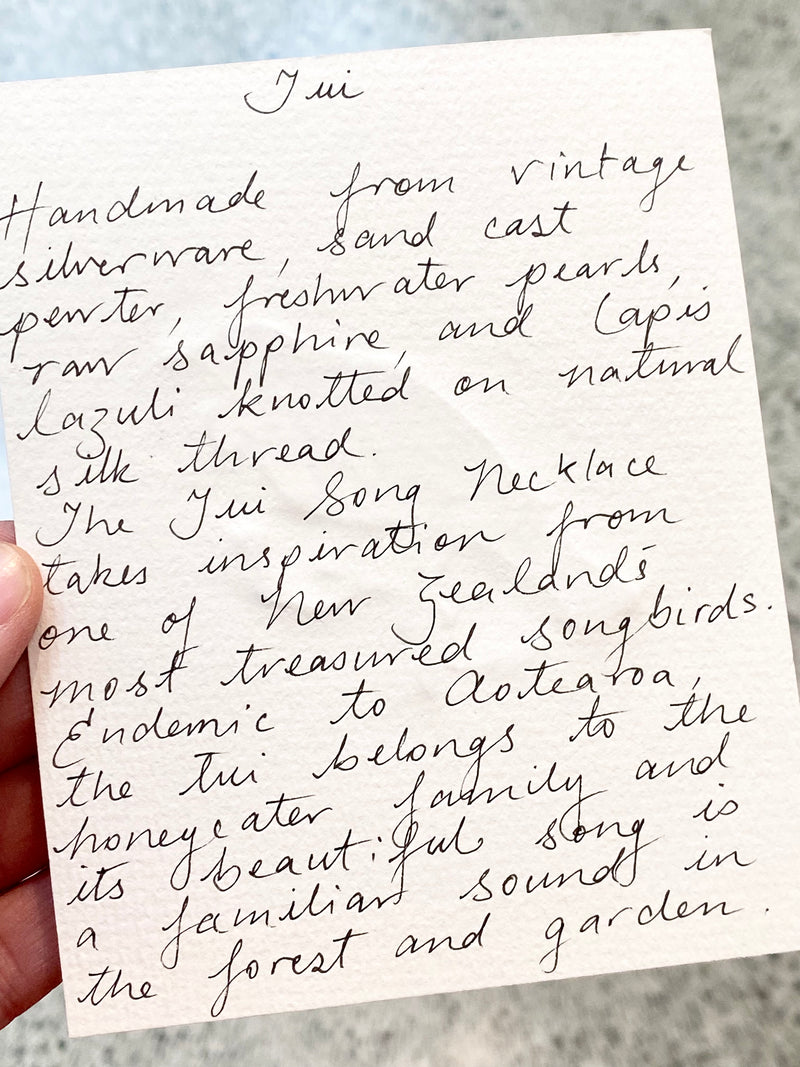 Tui
Handmade from vintage
silverware, sand cast
pewter, freshwater pearls,
raw sapphire, and Lapis
lazuli knotted on natural
silk thread.
The Tui Song Necklace
takes inspiration from
one of New Zealand's
most treasured songbirds.
Endemic to Aotearoa,
the tui belongs to the
honeyeater family and
its beautiful song is
a familiar sound in
the forest and garden.